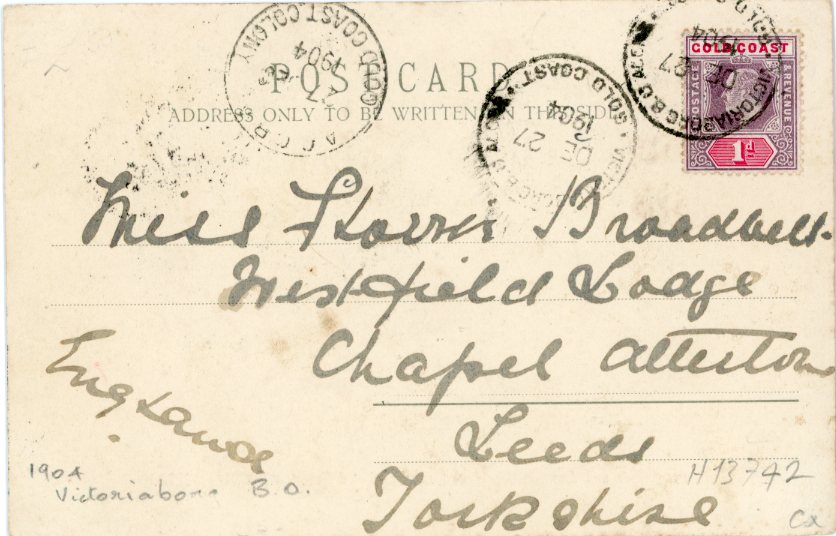 POST CARD
ADDRESS ONLY TO BE WRITTEN ON THIS SIDE
ACCRA
GOLD COAST COLONY
27
1904
VICTORIABORG B.O. ACCRA
GOLD COAST
DE 27
1904
VICTORIABORG B.O. ACC
DE 27
1904
GOLD COAST
POSTAGE & REVENUE
1d
Miss Broadbelt
Westfield Lodge
Chapel Allerton
Leeds
Yorkshire
England
1904
Victoriaborg B.O.
H13742